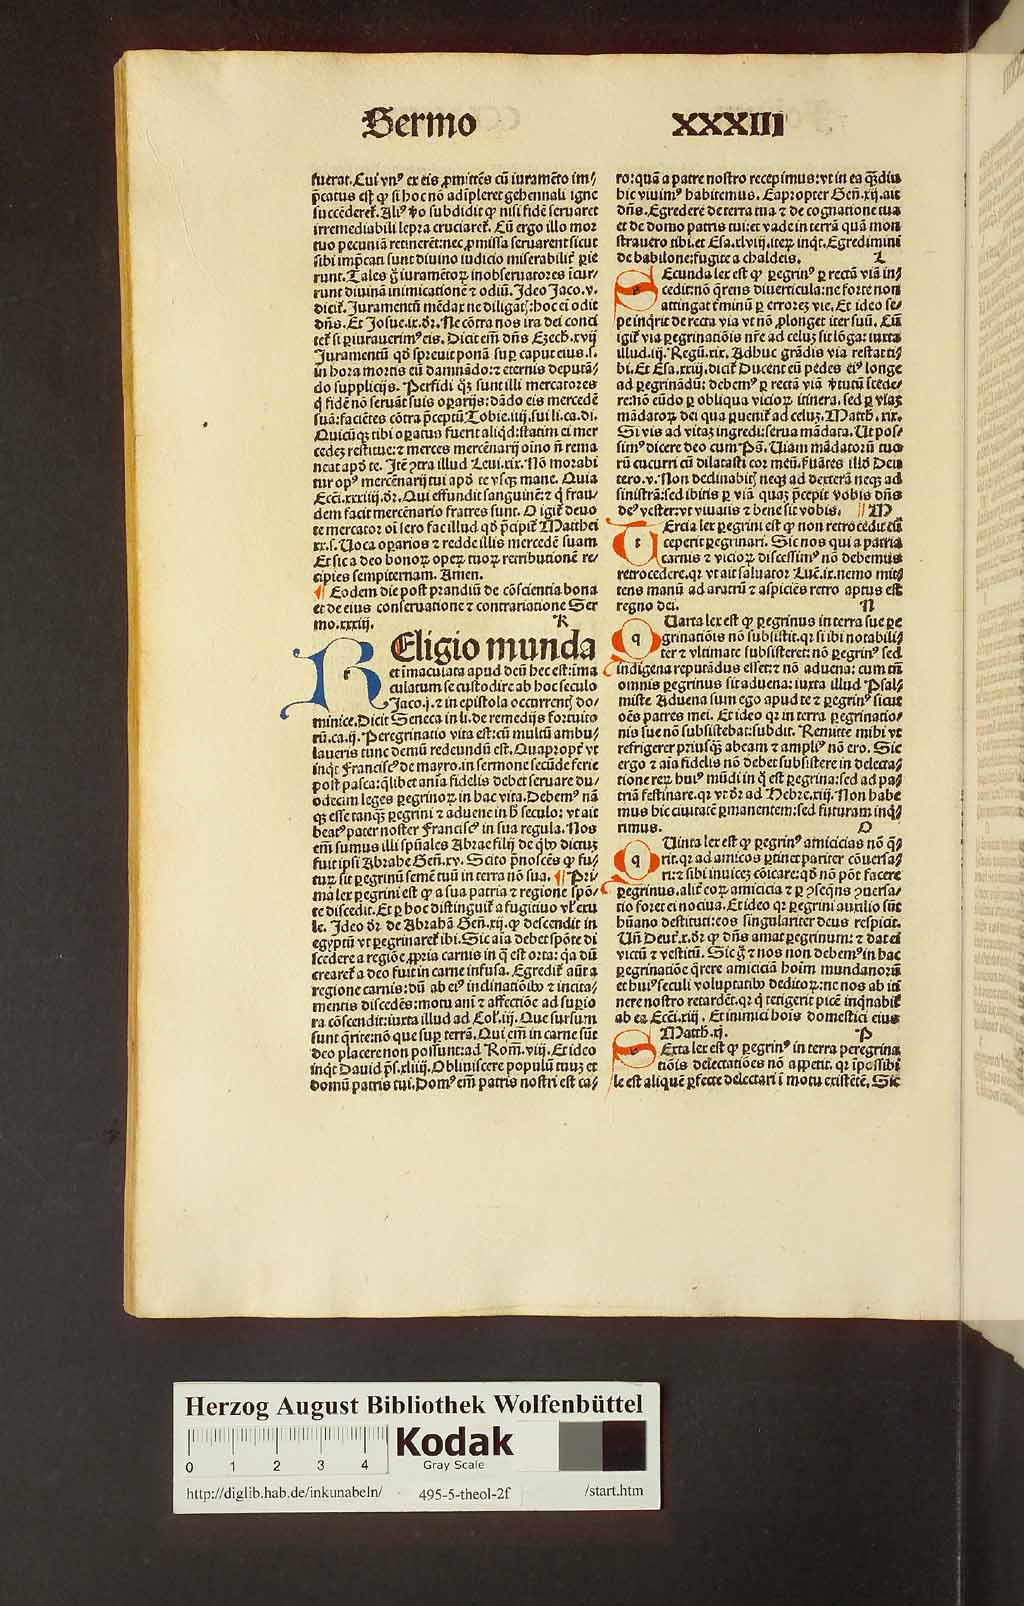 Sermo XXXIII
fuerat. Cui vnꝰ ex eis ꝓmittēs cū iuramēto im⸗
p̄catus est ꝙ si hoc nō adīpleret gehennali igne
succēderet̄. Aliꝰ v̄o subdidit ꝙ nisi fidē seruaret
irremediabili lepra cruciaret̄. Cū ergo illo mor
tuo pecuniā retinerēt: nec ꝓmissa seruarent sicut
sibi imp̄cati sunt diuino iudicio miserabilit̄ ꝑie
runt. Tales g̊ iuramētoꝝ inobseruatores īcur⸗
runt diuinā inimicationē ⁊ odiū. Ideo Jaco. v.
dicit̄. Juramentū mēdax ne diligat̄: hoc ei odit
dn̄s. Et Josue. ix. dr̄. Ne cōtra nos ira dei conci
tet̄ si ꝑiurauerimꝰ eis. Dicit em̄ dn̄s Ezech. xvij
Juramentū qd̄ spreuit ponā suꝑ caput eius. s.
in hora mortis eū damnādo: ⁊ eternis deputā⸗
do supplicijs. Perfidi qꝫ sunt illi mercatores
q̇ fidē nō seruāt suis oꝑarijs: dādo eis mercedē
suā: faciētes cōtra p̄ceptū Tobie. iiij. sui li. ca. di.
Quicūqꝫ tibi oꝑatus fuerit aliqd̄: statim ei mer
cedeꝫ restitue: ⁊ merces mercēnarij oīno n̄ rema
neat apd̄ te. Itē ꝯtra illud Leui. xix. Nō morabi
tur opꝰ mercēnarij tui apd̄ te vsqꝫ mane. Quia
Ecci. xxxiiij. dr̄. Qui effundit sanguinē: ⁊ q̇ frau⸗
dem facit mercēnario fratres sunt. O igit̄ deuo
te mercator oi sero fac illud qd̄ p̄cipit̄ Matthei
xx. s. Uoca oꝑarios ⁊ redde illis mercedē suam
Et sic a deo bonoꝝ opeꝝ tuoꝝ retributionē re⸗
cipies sempiternam. Amen.
¶ Eodem die post prandiū de cōscientia bona
et de eius conseruatione ⁊ contrariatione Ser
mo. xxxiij. K
REligio munda
et īmaculata apud deū hec est: īma
culatum se custodire ab hoc seculo
Jaco. j. ⁊ in epistola occurrenṭ do⸗
minice. Dicit Seneca in li. de remedijs fortuito
rū. ca. ij. Peregrinatio vita est: cū multū ambu⸗
laueris tunc demū redeundū est. Quapropt̄ vt
inq̇t Franciscꝰ de mayro. in sermone secūde ferie
post pasca: q̇libet aīa fidelis debet seruare du⸗
odecim leges ꝑegrinoꝝ in hac vita. Debemꝰ nā
qꝫ esse tanqꝫ ꝑegrini ⁊ aduene in h̄ seculo: vt ait
beatꝰ pater noster Franciscꝰ in sua regula. Nos
em̄ sumus illi spūales Abrae filij de qͥbꝰ dictuꝫ
fuit ipsi Abrahe Gen̄. xv. Scito p̄noscēs ꝙ fu⸗
tuꝝ sit ꝑegrinū semē tuū in terra nō sua. ¶ Pri⸗
ma lex ꝑegrini est ꝙ a sua patria ⁊ regione spō⸗
te discedit. Et ꝑ hoc distinguit̄ a fugitiuo vl̓ exu
le. Ideo dr̄ de Abrahā Gen̄. xij. ꝙ descendit in
egyptū vt ꝑegrinaret̄ ibi. Sic aīa debet spōte di
scedere a regiōe ꝓpria carnis in q̄ est orta: qa dū
crearet̄ a deo fuit in carne infusa. Egredit̄ aūt a
regione carnis: dū ab eiꝰ inclinatiōibꝰ ⁊ incita⸗
mentis discedēs: motu anī ⁊ affectiōe ad suꝑio
ra cōscendit: iuxta illud ad Col̓. iij. Que sursum
sunt q̄rite: nō que suꝑ terrā. Qui em̄ in carne sūt
deo placere non possunt: ad Rom̄. viij. Et ideo
inqt̄ Dauid ps̄. xliiij. Obliuiscere populū tuuꝫ et
domū patris tui. Domꝰ em̄ patris nostri est ca⸗
ro: quā a patre nostro recepimus: vt in ea qꝫdiu
hic viuimꝰ habitemus. Eapropter Gen̄. xij. ait
dn̄s. Egredere de terra tua ⁊ de cognatione tua
et de domo patris tui: et vade in terrā quā mon
strauero tibi. et Esa. xlviij. iteꝝ inqt̄. Egredimini
de babilone: fugite a chaldeis. L
SEcunda lex est ꝙ ꝑegrinꝰ ꝑ rectā viā in⸗
cedit: nō q̄rens diuerticula: ne forte non
attingat t̄minū ꝑ erroreꝫ vie. Et ideo se⸗
pe inqͥrit de recta via vt nō ꝓlonget iter suū. Cū
igit̄ via ꝑegrinatiōis nr̄e ad celuꝫ sit lōga: iuxta
illud. iij. Regū. xix. Adhuc grādis via restat ti⸗
bi. Et Esa. xxiij. dicit̄ Ducent eū pedes eiꝰ longe
ad ꝑegrinādū: debemꝰ ꝑ rectā viā v̄tutū īcede⸗
re: nō eūdo ꝑ obliqua vicioꝝ itinera. sed ꝑ viaꝫ
mādatoꝝ dei qua ꝑuenit̄ ad celuꝫ. Matth. xix.
Si vis ad vitaꝫ ingredi: serua mādata. Ut pos⸗
simꝰ dicere deo cum Ps̄. Uiam mādatorū tuo
rū cucurri cū dilatasti cor meū. s̄uātes illd̄ Deu
tero. v. Non declinabit̄ neqꝫ ad dexterā neqꝫ ad
sinistrā: sed ibitis ꝑ viā quaꝫ p̄cepit vobis dn̄s
deꝰ vester: vt viuatis ⁊ bene sit vobis. M
TErcia lex ꝑegrini est ꝙ non retrocedit cū
ceperit ꝑegrinari. Sic nos qui a patria
carnis ⁊ vicioꝝ discessimꝰ nō debemus
retrocedere. qꝛ vt ait saluator Luc̄. ix. nemo mit⸗
tens manū ad aratrū ⁊ aspiciēs retro aptus est
regno dei. N
QUarta lex est ꝙ ꝑegrinus in terra sue ꝑe
grinatiōis nō subsistit. qꝛ si ibi notabili⸗
ter ⁊ vltimate subsisteret: nō ꝑegrinꝰ sed
indigena reputādus esset: ⁊ nō aduena: cum tn̄
omnis ꝑegrinus sit aduena: iuxta illud Psal⸗
miste Aduena sum ego apud te ⁊ ꝑegrinꝰ sicut
oēs patres mei. Et ideo qꝛ in terra ꝑegrinatio⸗
nis sue nō subsistebat: subdit. Remitte mihi vt
refrigerer priusqꝫ abeam ⁊ ampliꝰ nō ero. Sic
ergo ⁊ aīa fidelis nō debet subsistere in delecta⸗
tione reꝝ huiꝰ mūdi in q̄ est ꝑegrina: sed ad pa⸗
triā festinare. qꝛ vt dr̄ ad Hebre. xiij. Non habe
mus hic ciuitatē ꝑmanentem: sed futuram inq̇⸗
rimus. O
QUinta lex est ꝙ ꝑegrinꝰ amicicias nō q̄⸗
rit. qꝛ ad amicos ꝑtinet pariter cōuersa⸗
ri: ⁊ sibi inuiceꝫ cōicare: qd̄ nō pōt facere
ꝑegrinus. alit̄ eoꝝ amicicia ⁊ ꝑ ꝯseqn̄s ꝯuersa⸗
tio foret ei nociua. Et ideo qꝛ ꝑegrini auxilio sūt
hūano destituti: eos singulariter deus respicit.
Un̄ Deut̄. x. dr̄ ꝙ dn̄s amat ꝑegrinum: ⁊ dat ei
victū ⁊ vestitū. Sic g̊ ⁊ nos non debemꝰ in hac
ꝑegrinatiōe q̄rere amiciciā hoīm mundanorū
et huiꝰ seculi voluptatibꝰ deditoꝝ: ne nos ab iti
nere nostro retardēt. qꝛ q̇ tetigerit picē inq̇nabit̄
ab ea Ecci. xiij. Et inimici hoīs domestici eius
Matth. x. P
SExta lex est ꝙ ꝑegrinꝰ in terra peregrina
tiōis delectatiōes nō appetit. qꝛ īpossibi
le est aliquē ꝑfecte delectari ī motu existētē. Sic
Herzog August Bibliothek Wolfenbüttel
0 1 2 3 4
Kodak
Gray Scale
http://diglib.hab.de/inkunabeln/ 495-5-theol-2f /start.htm